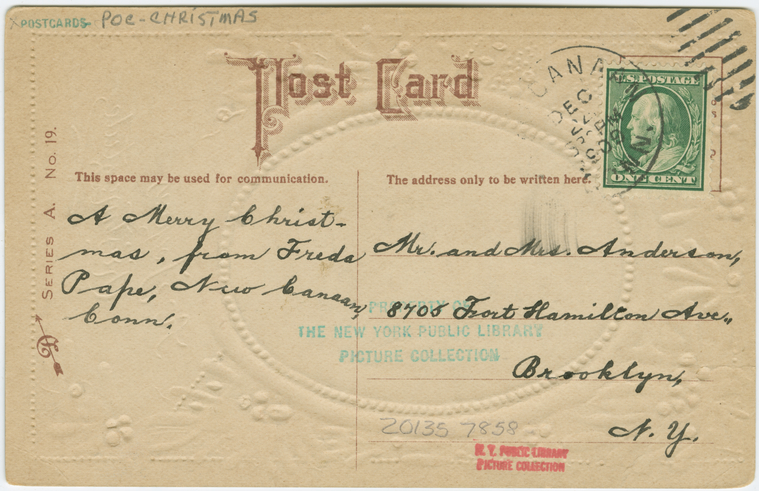 POSTCARDS- POC-CHRISTMAS
Post Card
CANAAN
DEC
U.S. POSTAGE
ONE CENT
This space may be used for communication.
The address only to be written here.
SERIES A. No. 19.
A Merry Christ-
mas, from Freda
Pape, New Canaan
Conn.
Mr. and Mrs. Anderson,
8705 Fort Hamilton Ave.,
Brooklyn,
N. Y.
PROPERTY OF
THE NEW YORK PUBLIC LIBRARY
PICTURE COLLECTION
20135 7858
N. Y. PUBLIC LIBRARY
PICTURE COLLECTION